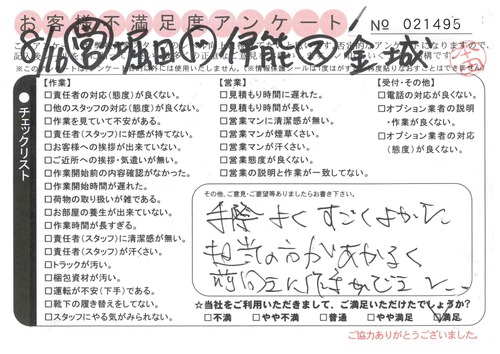 お客様不満足度アンケート
№ 021495
8/16 営 堀田 作 伊能 ② 金城
チェックリスト
【作業】
□責任者の対応(態度)が良くない。
□他のスタッフの対応(態度)が良くない。
□作業を見ていて不安がある。
□責任者(スタッフ)に好感が持てない。
□お客様への挨拶が出来ていない。
□ご近所への挨拶・気遣いが無い。
□作業開始前の内容確認がなかった。
□作業開始時間が遅れた。
□荷物の取り扱いが雑である。
□お部屋の養生が出来ていない。
□作業時間が長すぎる。
□責任者(スタッフ)に清潔感が無い。
□責任者(スタッフ)が汗くさい。
□トラックが汚い。
□梱包資材が汚い。
□運転が不安(下手)である。
□靴下の履き替えをしてない。
□スタッフにやる気がみられない。
【営業】
□見積もり時間に遅れた。
□見積もり時間が長い。
□営業マンに清潔感が無い。
□営業マンが煙草くさい。
□営業マンが汗くさい。
□営業態度が良くない。
□営業の説明と作業が一致してない。
【受付・その他】
□電話の対応が良くない。
□オプション業者の説明・作業が良くない。
□オプション業者の対応(態度)が良くない。
その他、ご意見・ご要望等ありましたらお書き下さい。
手際よくすごくよかった
担当の方があかるく
☆当社をご利用いただきまして、ご満足いただけたでしょうか?
□不満 □やや不満 □普通 □やや満足 □満足
ご協力ありがとうございました。